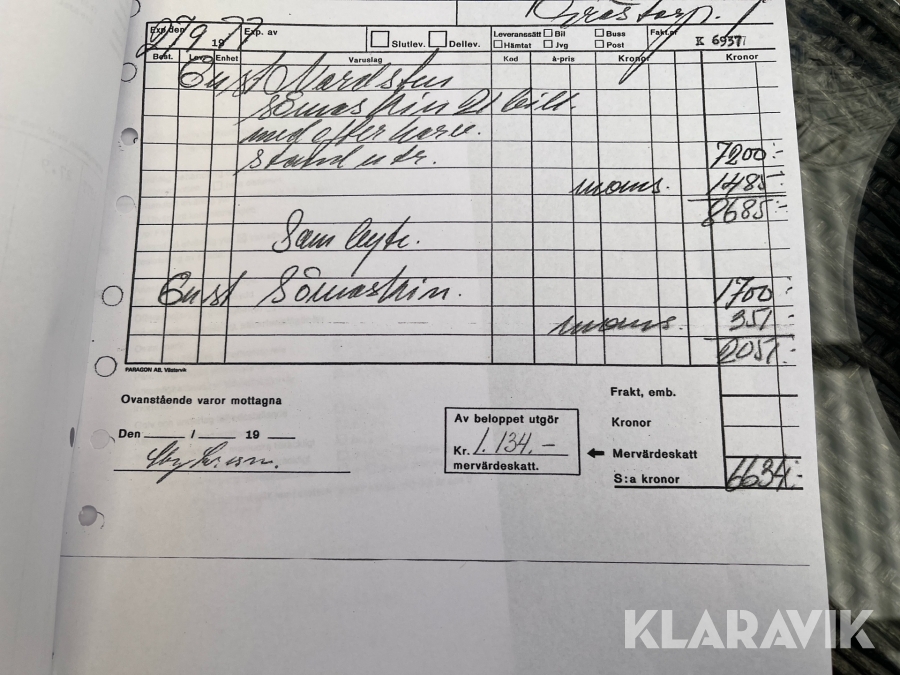 Grästorp.
Exp.den 27/9 1977 Exp. av Slutlev. Dellev. Leveranssätt Bil Buss Hämtat Jvg Post Fakt.nr K 6937
Best. Lev. Enhet Varuslag Kod à-pris Kronor Kronor
1 st Nordsten
Såmaskin 21 bill.
med efterharv.
7200:-
moms. 1485:-
8685:-
Som byte.
1 st Såmaskin. 1700:-
moms. 351:-
2051:-
PARAGON AB, Västervik
Ovanstående varor mottagna
Den / 19
Av beloppet utgör
Kr. 1.134.-
mervärdeskatt.
Frakt, emb.
Kronor
Mervärdeskatt
S:a kronor 6634:-
KLARAVIK